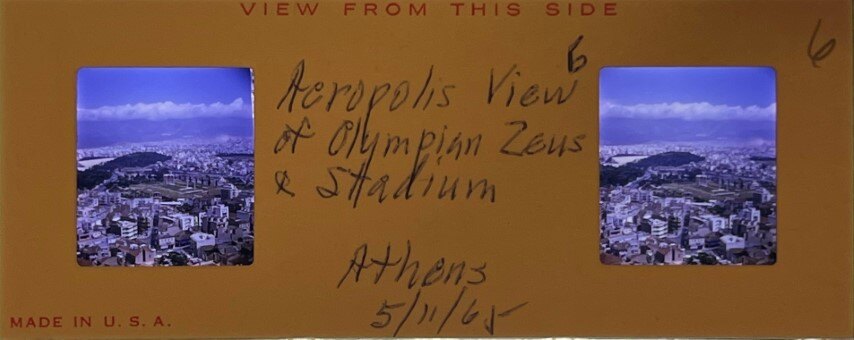 VIEW FROM THIS SIDE
6
6
Acropolis View
of Olympian Zeus
& Stadium
Athens
5/11/65
MADE IN U.S.A.